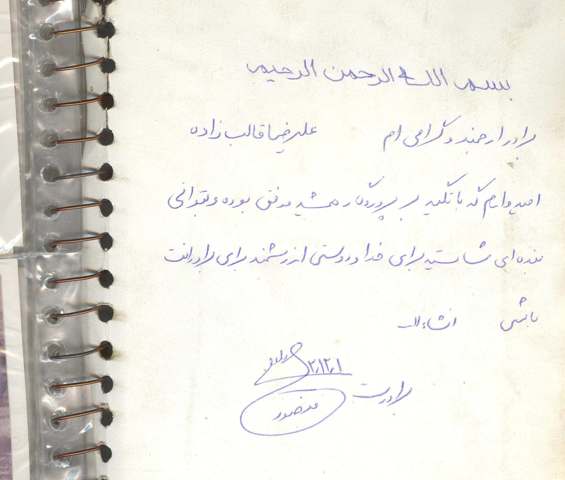 بسم الله الرحمن الرحیم
برادر ارجمند و گرامی ام علیرضا قالب زاده
امیدوارم که با تکیه بر پروردگار همیشه موفق بوده و بتوانی
بنده ای شایسته برای خدا و دوستی ارزشمند برای برادرانت
باشی انشاءالله
برادرت
منصور